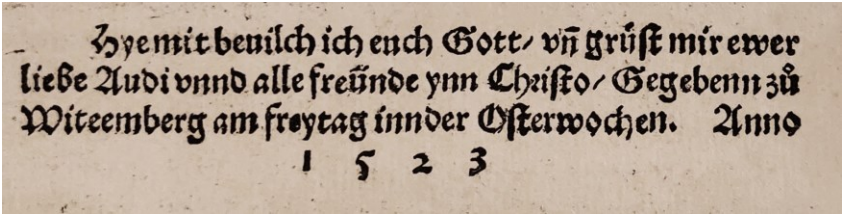 Hye mit beuilch ich euch Gott/ vñ grüſt mir ewer
liebe Audi vnnd alle freünde ynn Chriſto/ Gegebenn zů
Witeemberg am freytag innder Oſterwochen. Anno
1 5 2 3